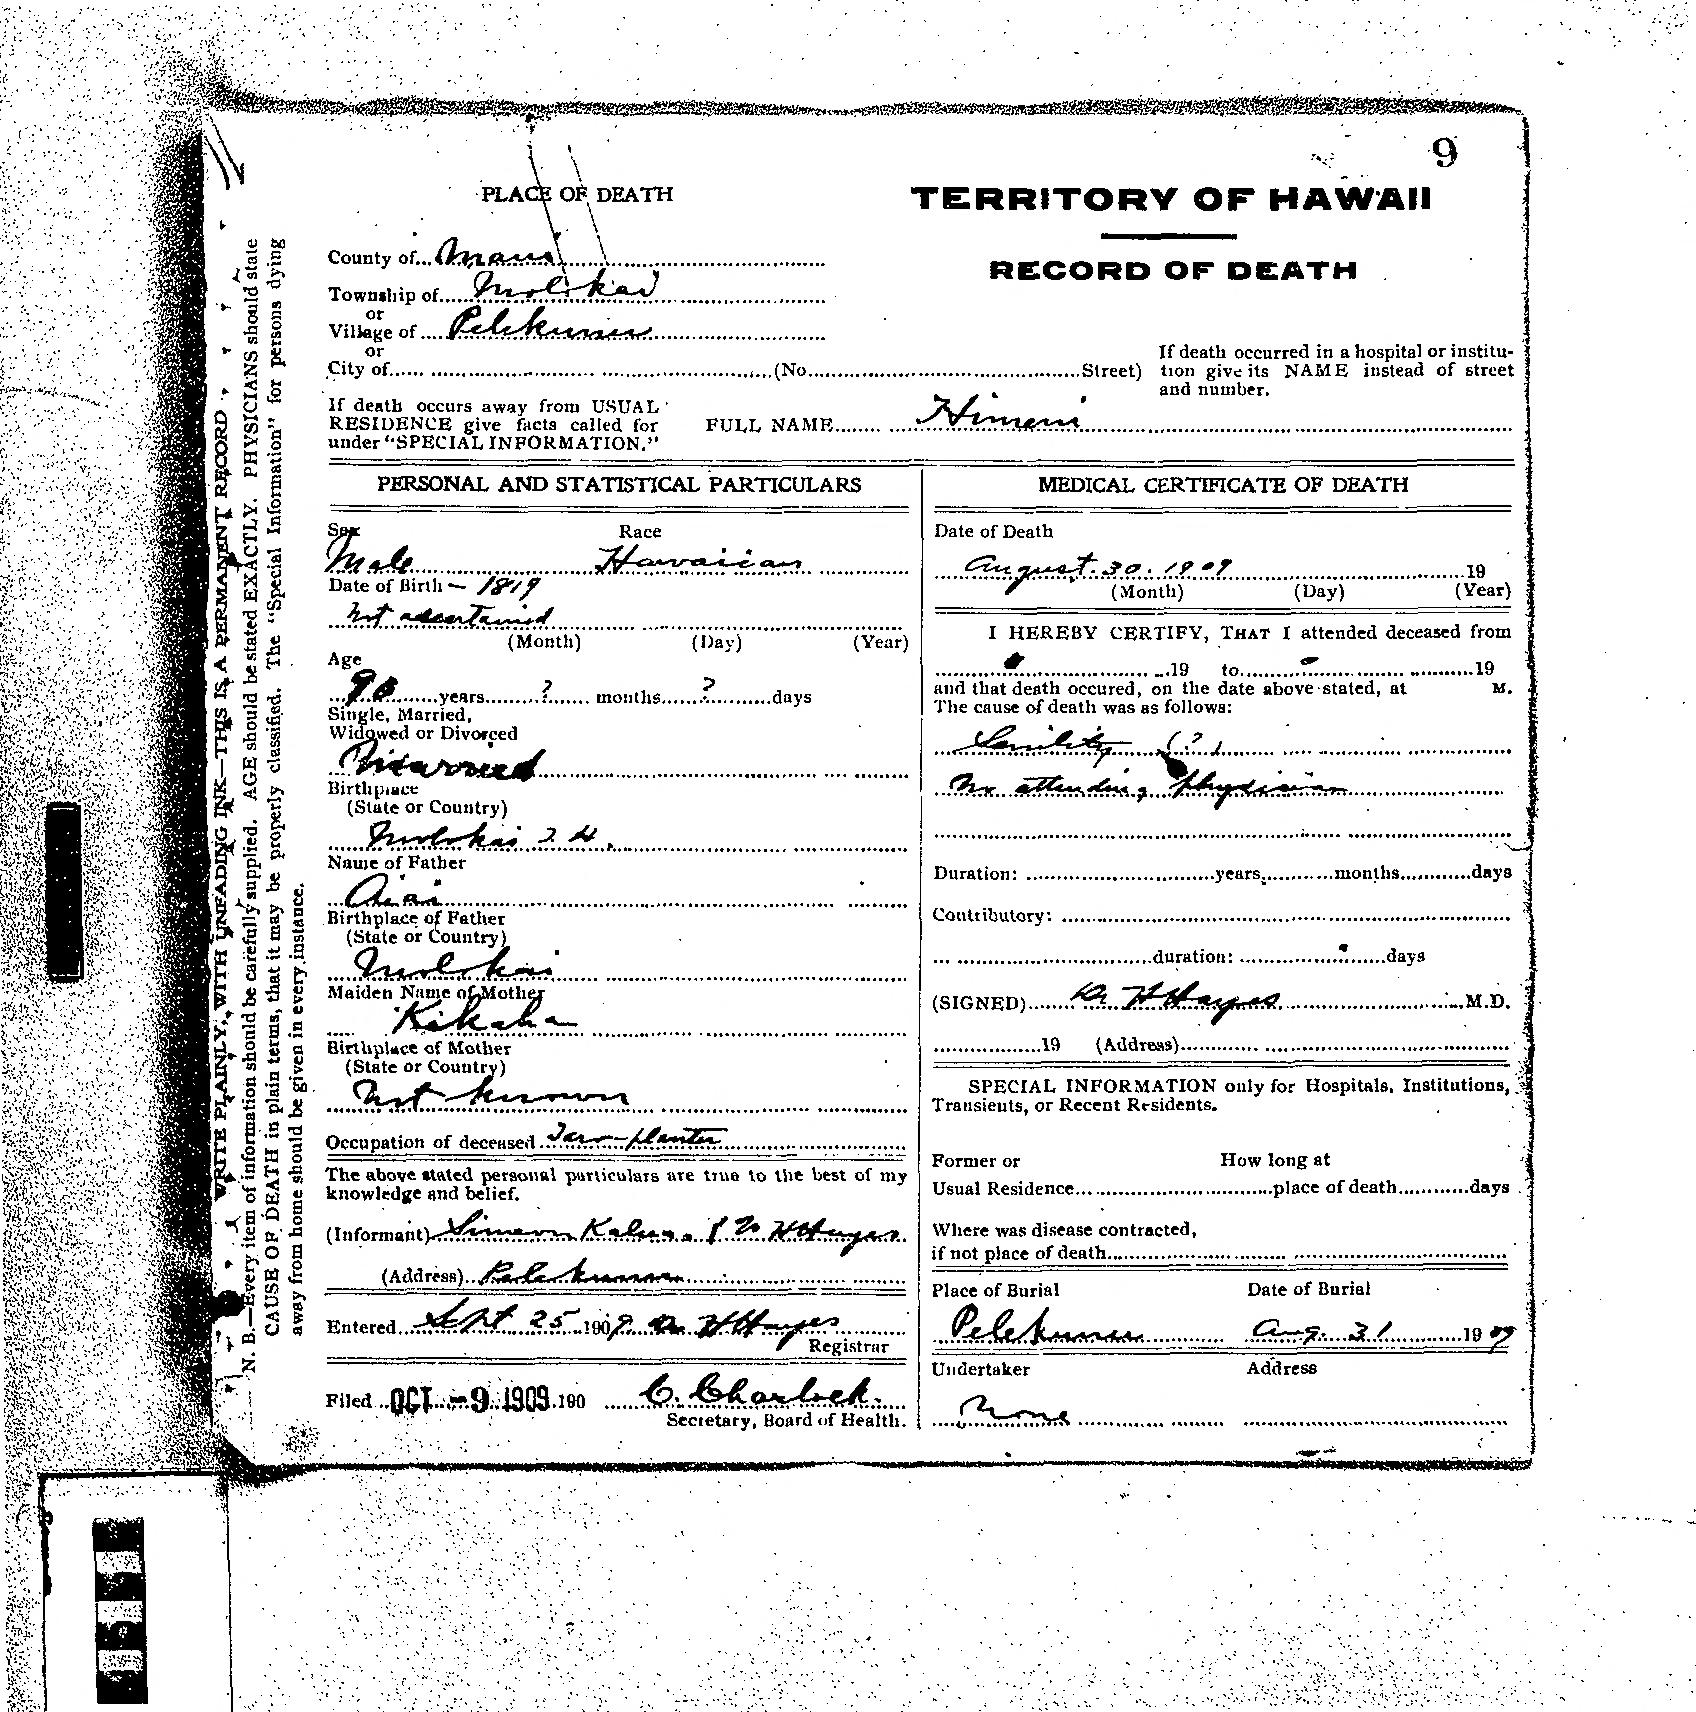 9
PLACE OF DEATH
TERRITORY OF HAWAII
RECORD OF DEATH
County of Maui
Township of Molokai
or
Village of Pelekunu
or
City of (No. Street)
If death occurred in a hospital or institu-
tion give its NAME instead of street
and number.
If death occurs away from USUAL
RESIDENCE give facts called for
under "SPECIAL INFORMATION."
FULL NAME Himeni
PERSONAL AND STATISTICAL PARTICULARS
Sex Race
Male Hawaiian
Date of Birth – 1819
Not ascertained
(Month) (Day) (Year)
Age
90 years ? months ? days
Single, Married,
Widowed or Divorced
Birthplace
(State or Country)
Molokai
Name of Father
Aiai
Birthplace of Father
(State or Country)
Molokai
Maiden Name of Mother
Kekaha
Birthplace of Mother
(State or Country)
Not known
Occupation of deceased Taro-planter
The above stated personal particulars are true to the best of my
knowledge and belief.
(Informant) Simeon & H Hayes
(Address) Pelekunu
Entered Sept 25 1909 H Hayes
Registrar
Filed OCT -9 1909 190 C. Charlock.
Secretary, Board of Health.
MEDICAL CERTIFICATE OF DEATH
Date of Death
August 30. 1909 19
(Month) (Day) (Year)
I HEREBY CERTIFY, THAT I attended deceased from
19 to 19
and that death occured, on the date above stated, at M.
The cause of death was as follows:
Senility (?)
No attending physician
Duration: years, months days
Contributory:
duration: days
(SIGNED) H Hayes M.D.
19 (Address)
SPECIAL INFORMATION only for Hospitals, Institutions,
Transients, or Recent Residents.
Former or How long at
Usual Residence place of death days
Where was disease contracted,
if not place of death
Place of Burial Date of Burial
Pelekunu Aug. 31 1909
Undertaker Address
None
WRITE PLAINLY, WITH UNFADING INK—THIS IS A PERMANENT RECORD
N. B.—Every item of information should be carefully supplied. AGE should be stated EXACTLY. PHYSICIANS should state
CAUSE OF DEATH in plain terms, that it may be properly classified. The "Special Information" for persons dying
away from home should be given in every instance.